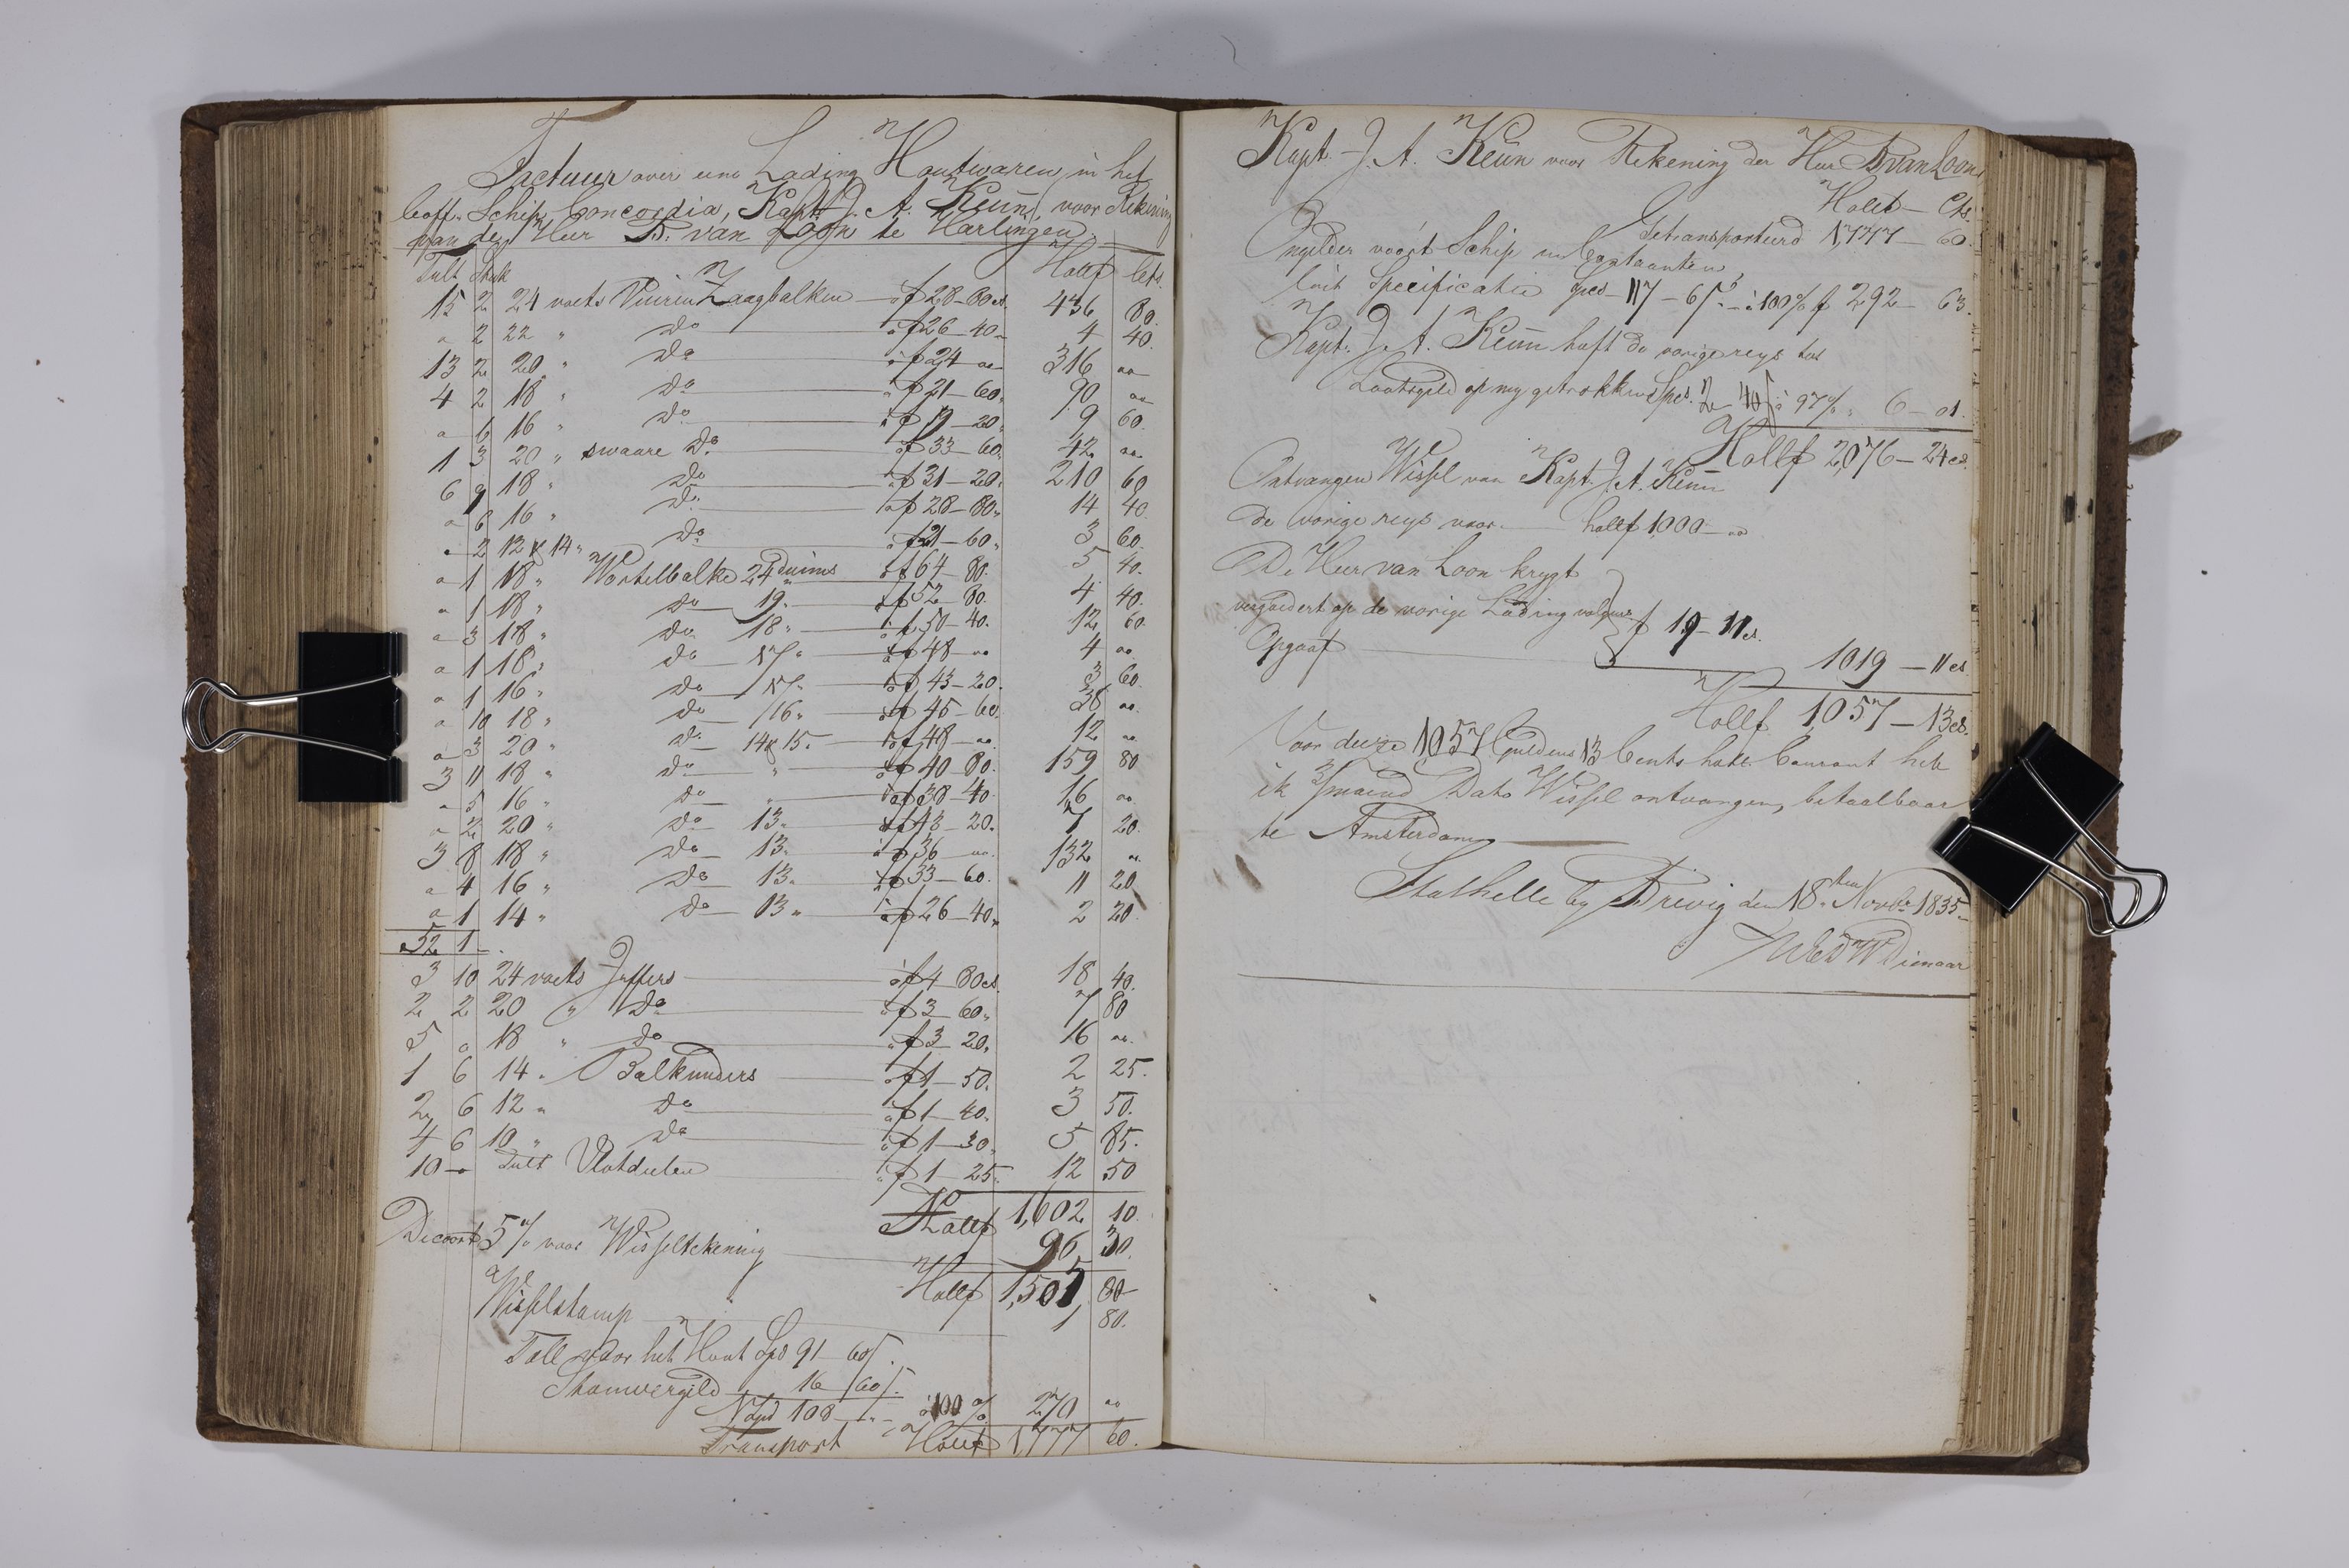 Factuur over eene Lading Houtwaren in het
Coff Schip Concordia, Kapt. J. A. Keun, voor Rekening
van de Heer B. van Loon te Harlingen.
Tult Stuk Hollf Cts.
15 2 24 voets Vuiren Zaagbalken à f 28-80cs. 436 80.
" 2 22 " do à f 26-40 4 40.
13 2 20 " do à f 24 " 316 "
4 2 18 " do à f 21-60. 90 "
" 6 16 " do à f 19-20. 9 60.
1 3 20 " swaare do à f 33-60. 42 "
6 9 18 " do à f 31-20. 210 60
" 6 16 " do à f 28-80. 14 40.
" 2 12 & 14 " do à f 21-60. 3 60.
" 1 18 " Wortelbalke 24 duims à f 64-80. 5 40.
" 1 18 " do 19 " à f 52-80. 4 40.
" 3 18 " do 18 " à f 50-40. 12 60.
" 1 18 " do 17 " à f 48 " 4 "
" 1 16 " do 17 " à f 43-20. 3 60.
" 10 18 " do 16 " à f 45-60. 38 "
" 3 20 " do 14 & 15 " à f 48 " 12 "
3 11 18 " do " à f 40-80. 159 80
" 5 16 " do " à f 38-40. 16 "
" 2 20 " do 13 " à f 43-20. 7 20.
3 8 18 " do 13 " à f 36 " 132 "
" 4 16 " do 13 " à f 33-60. 11 20
" 1 14 " do 13 " à f 26-40. 2 20.
52 1
3 10 24 voets Juffers à f 4 80cs. 18 40.
2 2 20 " do à f 3-60. 7 80
5 " 18 " do à f 3 20. 16 "
1 6 14 " Balkunders à f 1-50. 2 25.
2 6 12 " do à f 1-40. 3 50.
4 6 10 " do à f 1-30. 5 85.
10 " Tult Vlotdeelen à f 1-25. 12 50
Hollf 1,602 10.
Dicoort 5% voor Wisseltekening 96 30.
Hollf 1,505 80
Wisselstamp 1 80.
Toll voor het Hout Spd 91 60/
16 60/
Spd 108 à 100% 270 "
Transport Hollf 1,777 60.
Kapt. J. A. Keun voor Rekening der Heer B van Loon
Hollf Cts.
Getransporteerd 1,777-60.
Ongelder voor't Schip en Contanten,
luit Specificatie Spd 117-65 à 100% f 292-63.
Kapt. J. A. Keun heft de vorige reys tot
Lootsgeld op my getrokken Spd. 2 40/ à 97% " 6-01.
Hollf 2,076-24cs.
Ontvangen Wissel van Kapt. J. A. Keun
de vorige reys voor hollf 1,000 "
De Heer van Loon krygt
vergoedert op de vorige Lading volgens f 19-11cs.
Opgaaf 1019-11cs
Hollf 1,057-13cs.
Voor deeze 1,057 Guldens 13 Cents holl. Courant heb
ik 3/maend Dato Wissel ontvangen, betaalbaar
te Amsterdam
Stathelle by Brevig den 18ten Novbr 1835